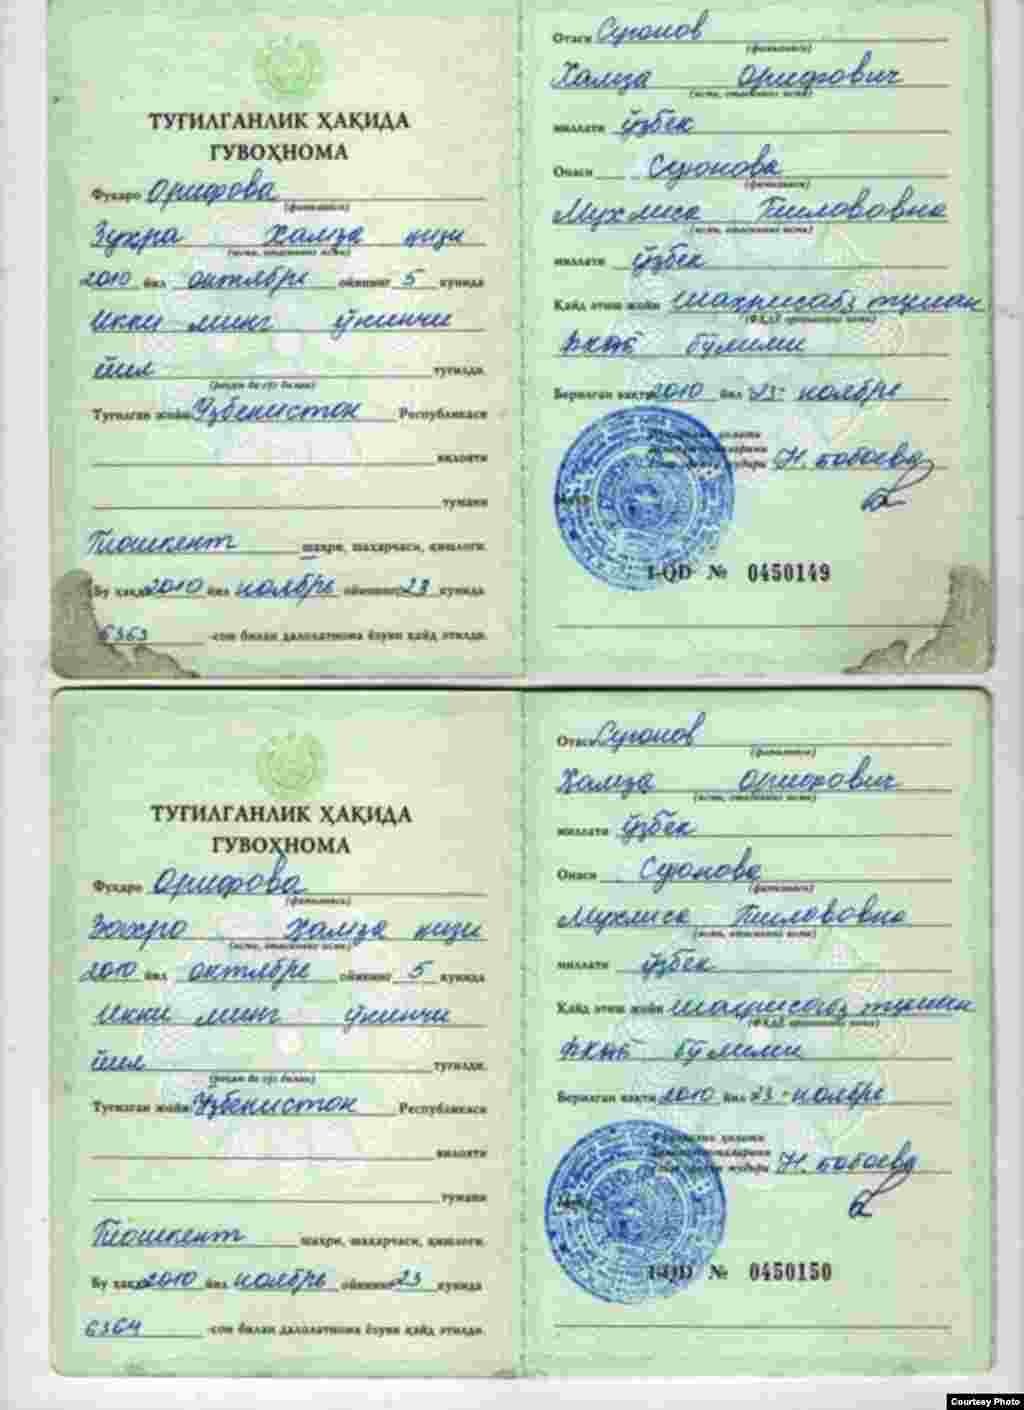 ТУҒИЛГАНЛИК ҲАҚИДА
ГУВОҲНОМА
Фуқаро Орифова
(фамилияси)
Зуҳра Ҳамза қизи
(исми, отасининг исми)
2010 йил октябрь ойининг 5 кунида
Икки минг ўнинчи
йил туғилди.
(рақам ва сўз билан)
Туғилган жойи Ўзбекистон Республикаси
вилояти
тумани
Тошкент шаҳри, шаҳарчаси, қишлоғи.
Бу ҳақда 2010 йил ноябрь ойининг 23 кунида
6363 -сон билан далолатнома ёзуви қайд этилди.
Отаси Суюнов
(фамилияси)
Ҳамза Орифович
(исми, отасининг исми)
миллати ўзбек
Онаси Суюнова
(фамилияси)
Мухлиса
(исми, отасининг исми)
миллати ўзбек
Қайд этиш жойи Шаҳрисабз туман
(ФҲДЁ органининг номи)
ФҲДЁ бўлими
Берилган вақти 2010 йил 23 ноябрь
Н. Бобоева
I-QD № 0450149
ТУҒИЛГАНЛИК ҲАҚИДА
ГУВОҲНОМА
Фуқаро Орифова
(фамилияси)
Зохро Ҳамза қизи
(исми, отасининг исми)
2010 йил октябрь ойининг 5 кунида
Икки минг ўнинчи
йил туғилди.
(рақам ва сўз билан)
Туғилган жойи Ўзбекистон Республикаси
вилояти
тумани
Тошкент шаҳри, шаҳарчаси, қишлоғи.
Бу ҳақда 2010 йил ноябрь ойининг 23 кунида
6364 -сон билан далолатнома ёзуви қайд этилди.
Отаси Суюнов
(фамилияси)
Ҳамза Орифович
(исми, отасининг исми)
миллати ўзбек
Онаси Суюнова
(фамилияси)
Мухлиса
(исми, отасининг исми)
миллати ўзбек
Қайд этиш жойи Шаҳрисабз туман
(ФҲДЁ органининг номи)
ФҲДЁ бўлими
Берилган вақти 2010 йил 23 ноябрь
Н. Бобоева
I-QD № 0450150
Courtesy Photo